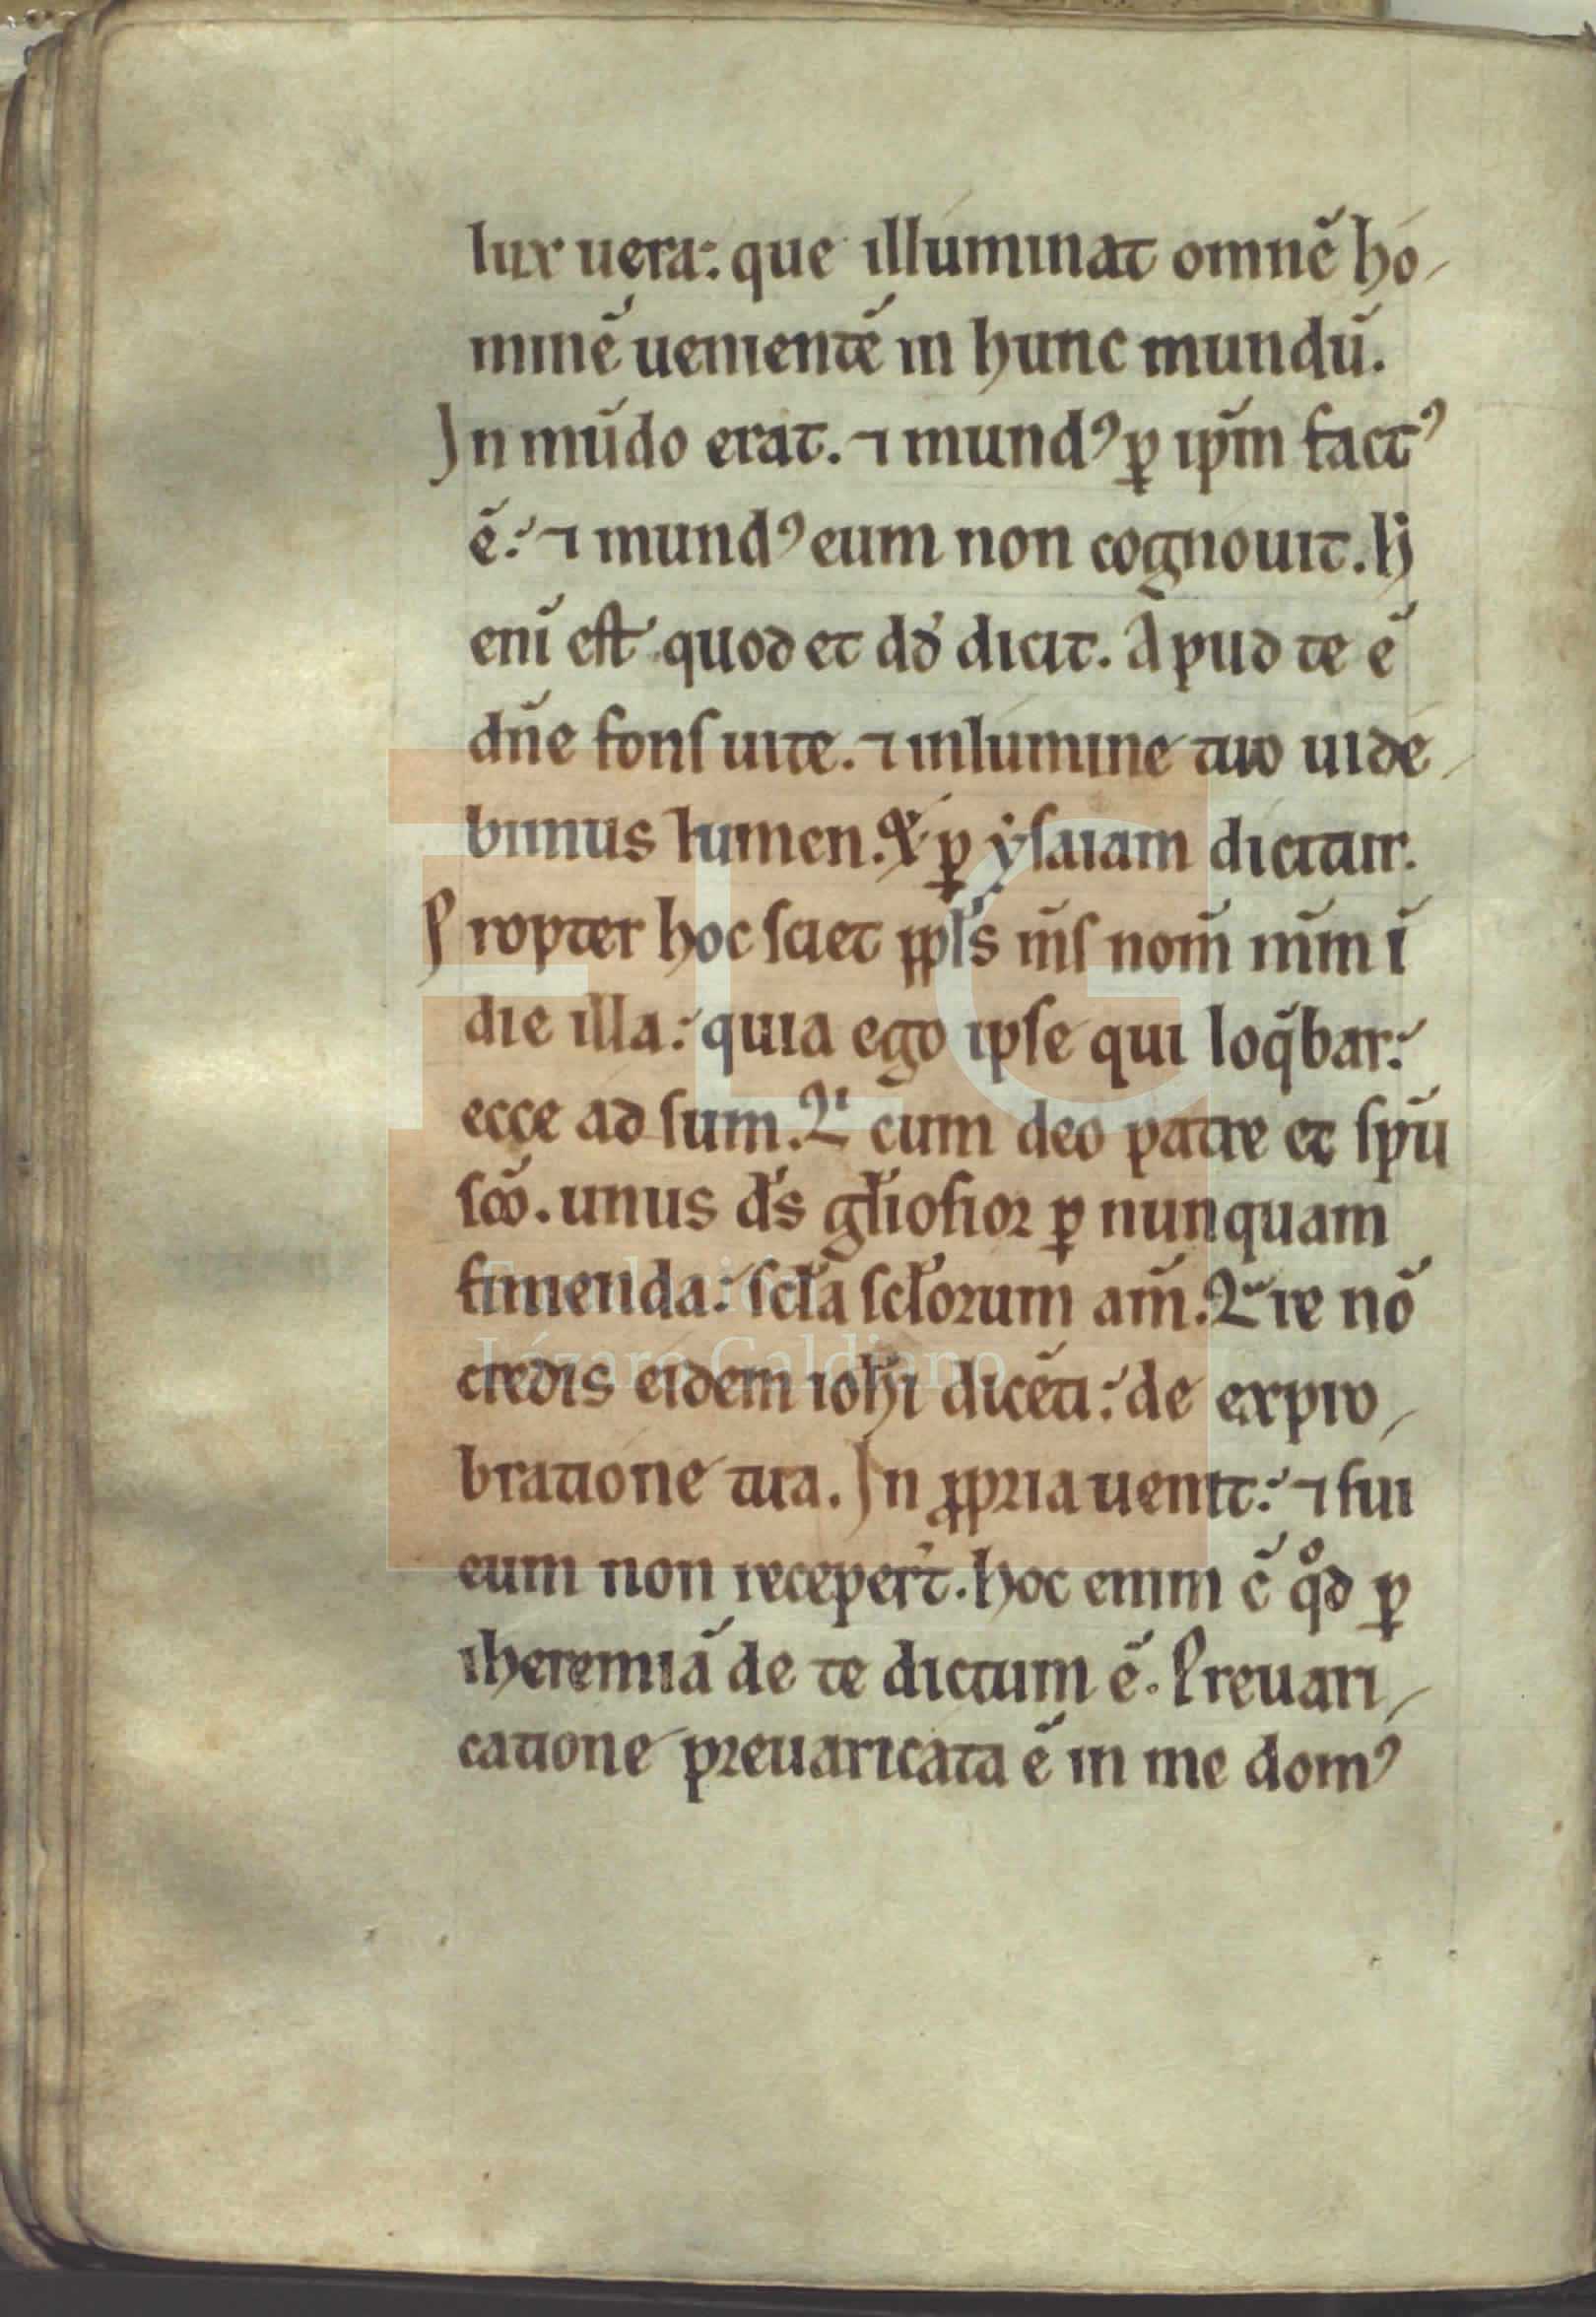 lux uera: que illuminat omnē ho-
minē uenientē in hunc mundū.
In mūdo erat. ⁊ mundꝰ ꝑ ip̄m factꝰ
ē: ⁊ mundꝰ eum non cognouit. h̄
enī est quod et dd̄ dicit. Apud te ē
dn̄e fons uite. ⁊ in lumine tuo uide-
bimus lumen. ꝑ ẏsaiam dicitur.
Propter hoc sciet ppl̄s m̄s nom̄ mm̄ ī
die illa: quia ego ipse qui loq̄bar:
ecce ad sum. Qⁱ cum deo patre et sp̄u
sc̄o. unus d̄s gl̄iosior ꝑ nunquam
finienda: scl̄a scl̄orum am̄. Q̄re nō
credis eidem ioh̄i dicēti: de expro-
bratione tua. In ꝓpria uenit: ⁊ sui
eum non receper̄t. hoc enim ē qͦd ꝑ
iheremiā de te dictum ē. Preuari-
catione preuaricata ē in me domꝰ
FLG
Lázaro Galdiano